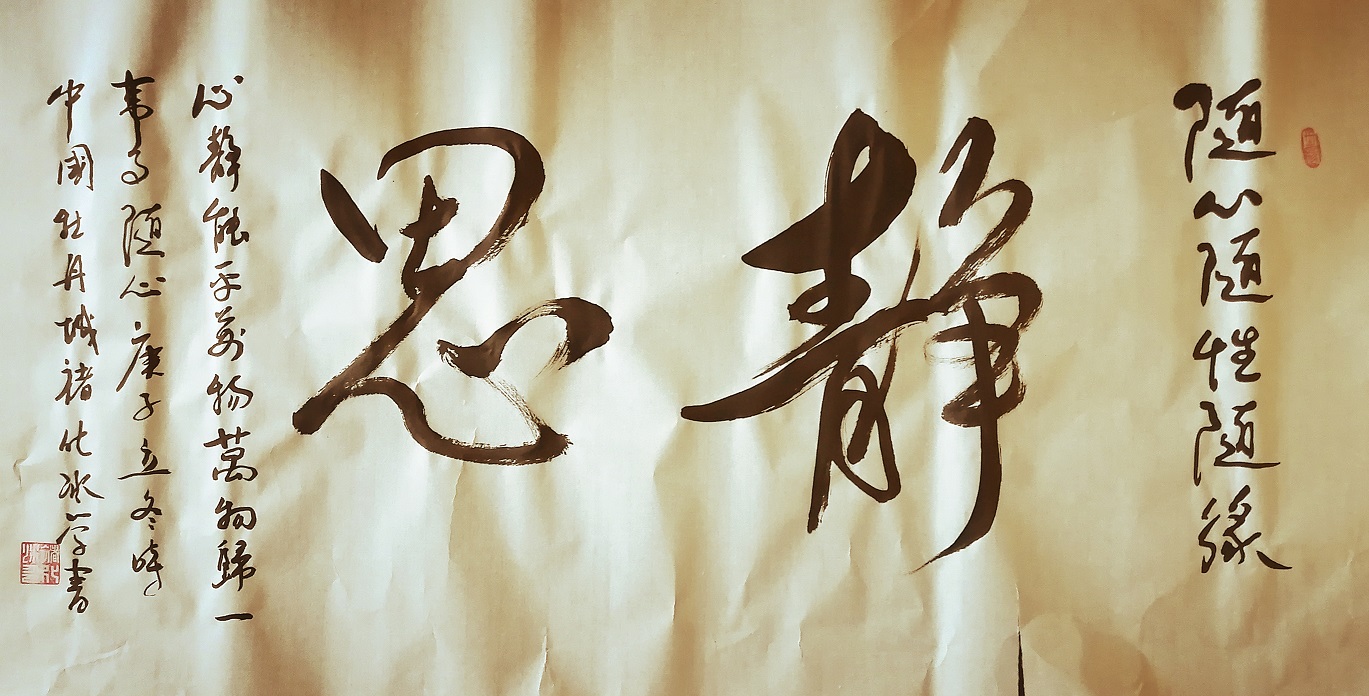 随心随性随缘
静思
心静能平万物萬物归一
韦 随心庚子立冬时
中國牡丹城褚化冰学書